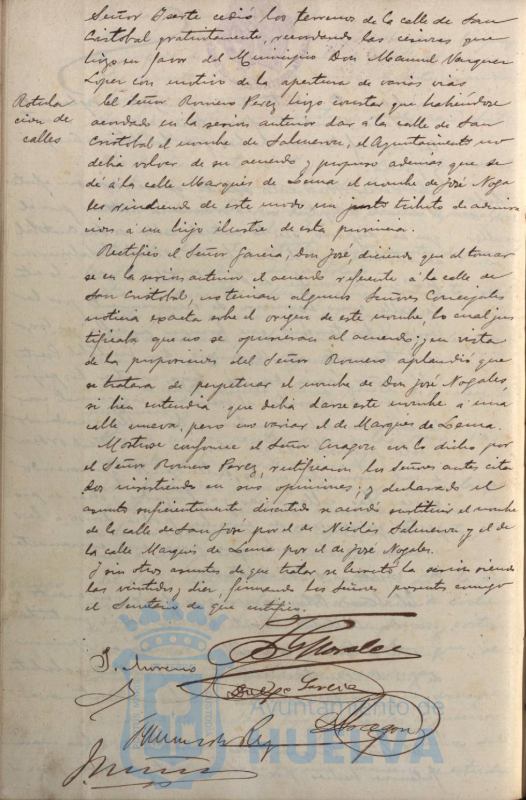 Señor Duarte cedió los terrenos de la calle de San
Cristobal gratuitamente, recordando las cesiones que
hizo en favor del Municipio Don Manuel Vazquez
Lopez con motivo de la apertura de varias vias
Rotula
cion de
calles
El Señor Romero Perez hizo constar que habiéndose
acordado en la sesion anterior dar á la calle de San
Cristobal el nombre de Salmeron, el Ayuntamiento no
debia volver de su acuerdo y propuso ademas que se
dé á la calle Marqués de Lema el nombre de José Noga
les rindiendo de este modo un justo tributo de admira
cion á un hijo ilustre de esta
Rectificó el Señor Garcia, Don José, diciendo que al tomar
se en la sesion anterior el acuerdo referente á la calle de
San Cristobal, no tenian algunos Señores Concejales
noticia exacta sobre el origen de este nombre, lo cual jus
tificaba que no se opusieran al acuerdo; y en vista
de la proposicion del Señor Romero aplaudió que
se tratara de perpetuar el nombre de Don José Nogales,
si bien entendia que debia darse este nombre á una
calle nueva, pero no variar el de Marques de Lema.
Mostrose conforme el Señor Aragon con lo dicho por
el Señor Romero Perez, rectificaron los Señores antes cita
dos insistiendo en sus opiniones; y declarado el
asunto suficientemente discutido se acordó sustituir el nombre
de la calle de San José por el de Nicolás Salmeron y el de
la calle Marqués de Lema por el de José Nogales.
Y sin otros asuntos de que tratar se levantó la sesion siendo
las veintidos y diez, firmando los Señores presentes conmigo
el Secretario de que certifico.
Morales
J. Moreno
Garcia
Aragon
Ayuntamiento de
HUELVA